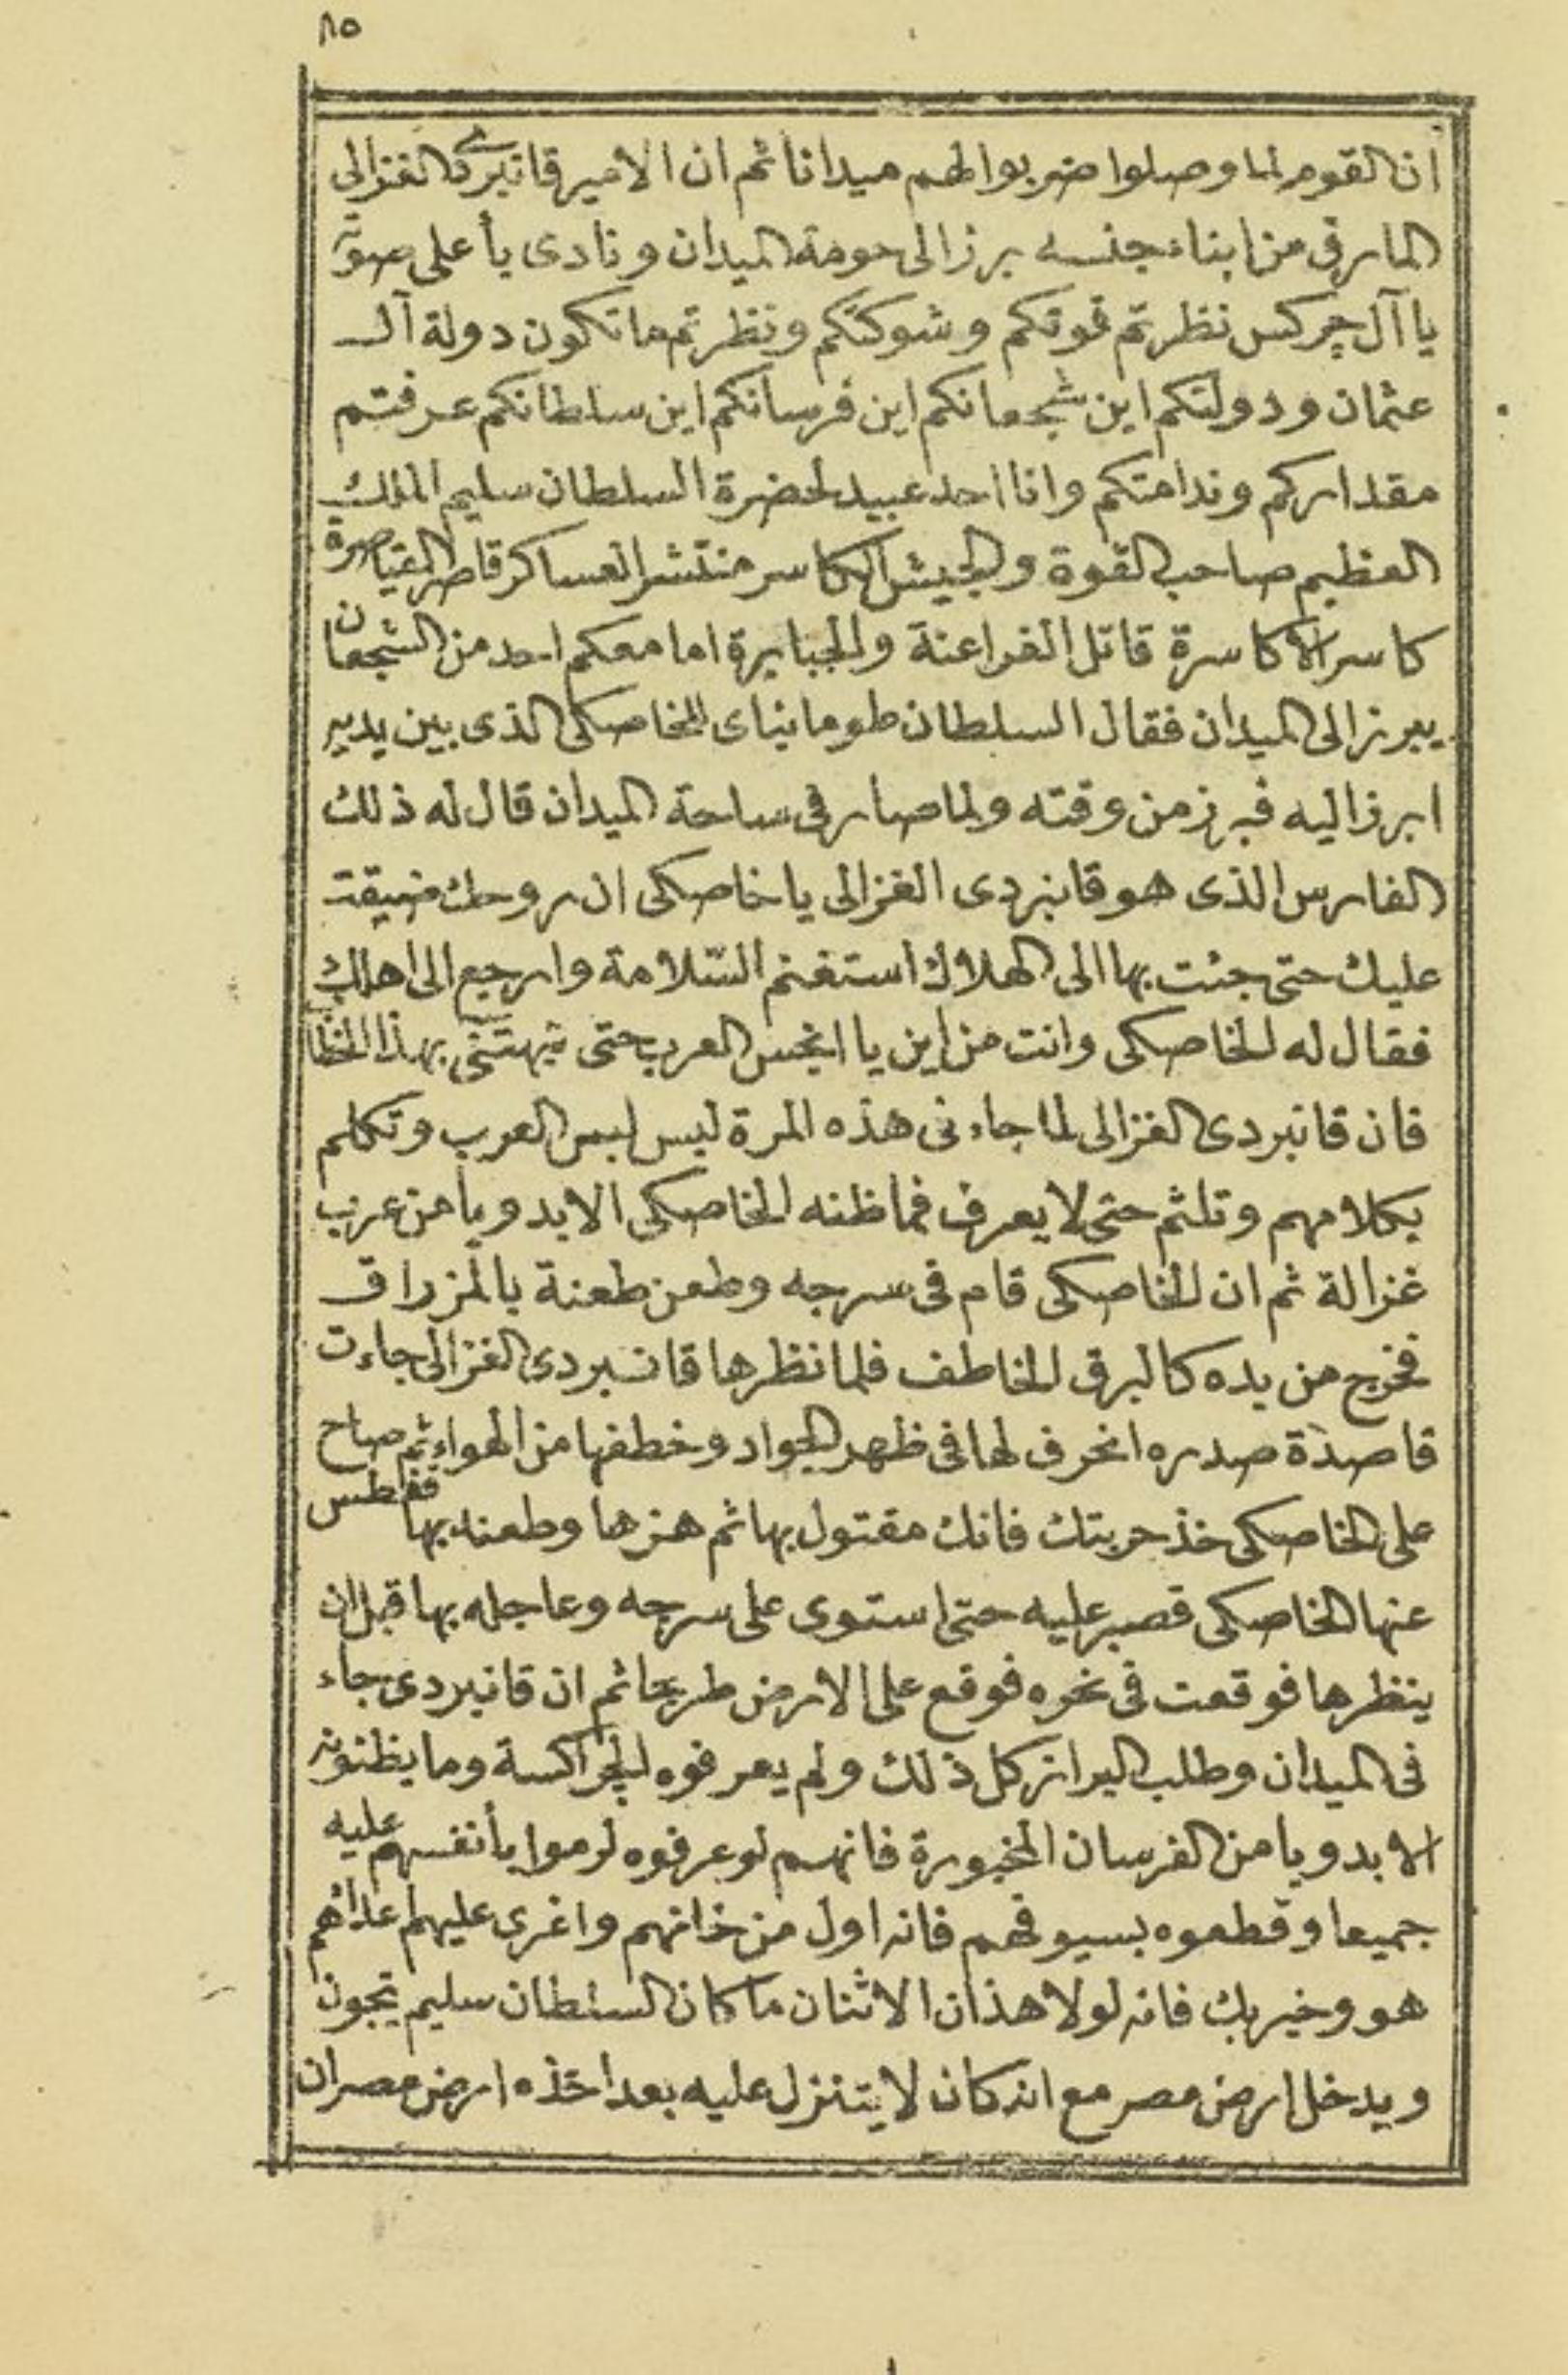 ٨٥
ان القوم لما وصلوا ضربوا لهم ميدانا ثم ان الامير قانبردى الغزالى
المارق من ابناء جنسه برز الى حومة الميدان ونادى بأعلى صوته
يا آل چركس نظرتم قوتكم وشوكتكم ونظرتم ما تكون دولة آل
عثمان ودولتكم اين شجعانكم اين فرسانكم اين سلطانكم عرفتم
مقداركم وندامتكم وانا احد عبيد لحضرة السلطان سليم الملك
العظيم صاحب القوة والجيش الكاسر منتشر العساكر قاصر القياصرة
كاسر الاكاسرة قاتل الفراعنة والجبابرة اما معكم احد من الشجعان
يبرز الى الميدان فقال السلطان طومانباى للخاصكى الذى بين يديه
ابرز اليه فبرز من وقته ولما صار فى ساحة الميدان قال له ذلك
الفارس الذى هو قانبردى الغزالى يا خاصكى ان روحك ضيقت
عليك حتى جئت بها الى الهلاك استغنم السّلامة وارجع الى اهلك
فقال له الخاصكى وانت من اين يا انجس العرب حتى تبهتنى بهذا الخطاب
فان قانبردى الغزالى لما جاء فى هذه المرة لبس لبس العرب وتكلم
بكلامهم وتلثم حتى لا يعرف فما ظنه الخاصكى الا بدويا من عرب
غزالة ثم ان الخاصكى قام فى سرجه وطعن طعنة بالمزراق
فخرج من يده كالبرق الخاطف فلما نظرها قانبردى الغزالى جاءت
قاصدة صدره انحرف لها فى ظهر الجواد وخطفها من الهواء ثم صاح
على الخاصكى خذ حربتك فانك مقتول بها ثم هزها وطعنه بها فغطس
عنها الخاصكى فصبر عليه حتى استوى على سرجه وعاجله بها قبل ان
ينظرها فوقعت فى نحره فوقع على الارض طريحا ثم ان قانبردى جاء
فى الميدان وطلب البراز كل ذلك ولم يعرفوه الچراكسة وما يظنونه
الا بدويا من الفرسان المخبورة فانهم لو عرفوه لرموا بأنفسهم عليه
جميعا وقطعوه بسيوفهم فانه اول من خانهم واغرى عليهم اعدائهم
هو وخير بك فانه لولا هذان الاثنان ما كان السلطان سليم يتجون
ويدخل ارض مصر مع انه كان لا يتنزل عليه بعد اخذه ارض مصر ان